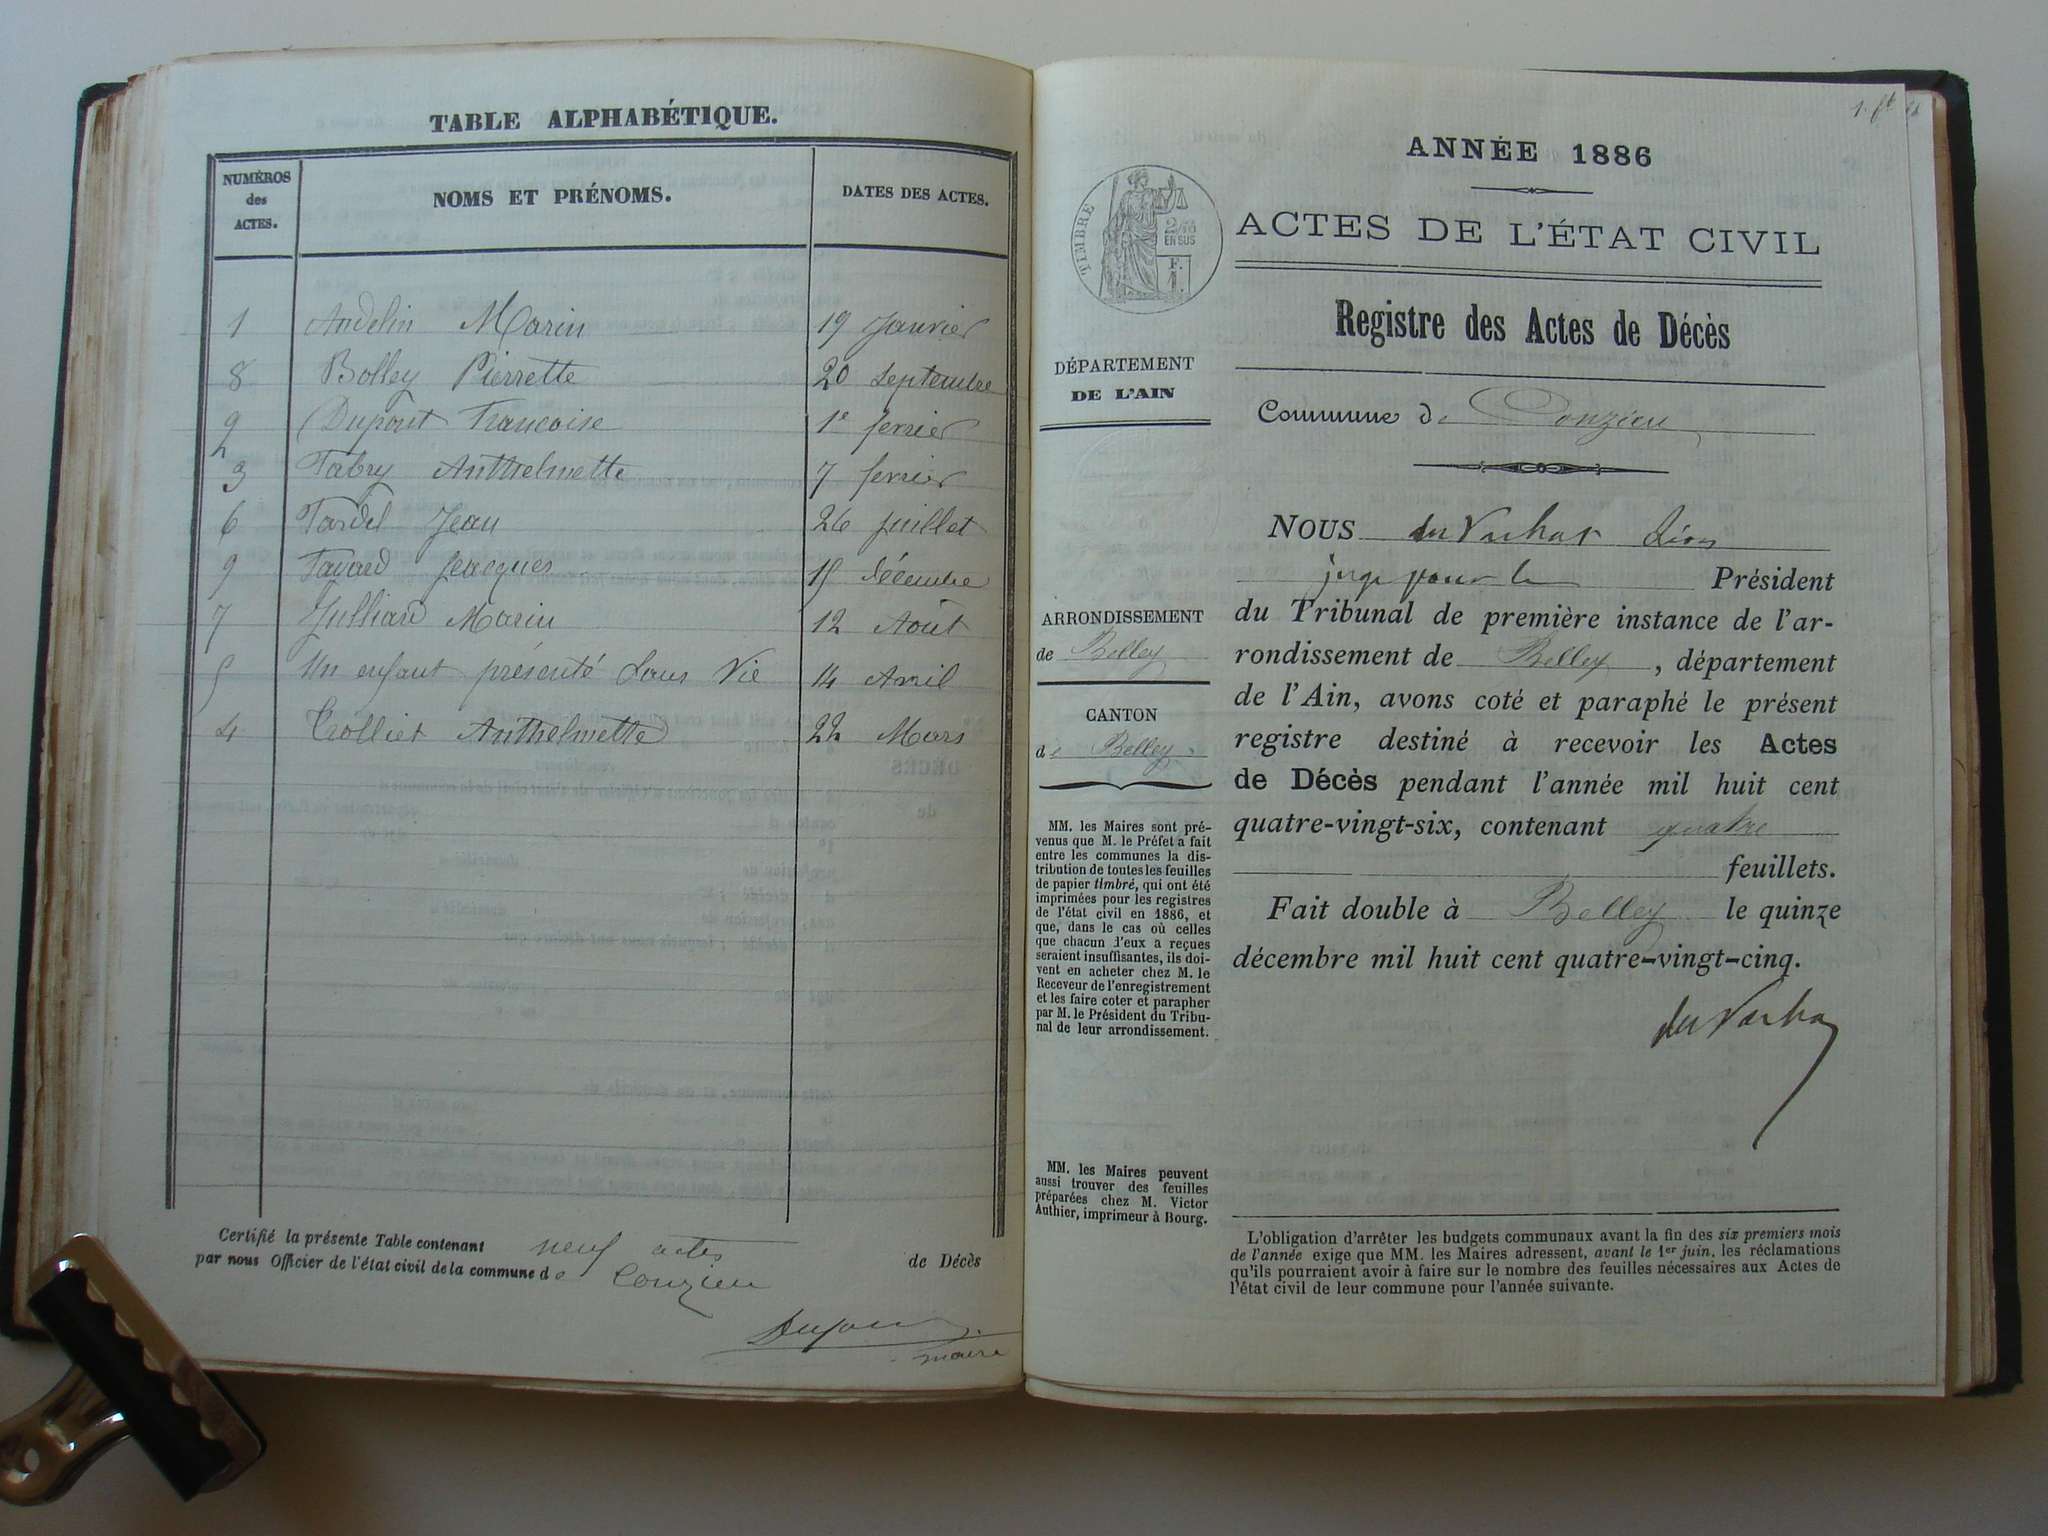 TABLE ALPHABÉTIQUE.
NUMÉROS
des
ACTES.
NOMS ET PRÉNOMS.
DATES DES ACTES.
1 Andelin Marin 19 Janvier
8 Bolley Pierrette 20 Septembre
2 Dupont Francoise 1e fevrier
3 Fabry Anthelmette 7 fevrier
6 Tardel Jean 26 juillet
9 Favard Jeacques 15 Décembre
7 Julliard Marin 12 Août
5 Un enfant présenté sans Vie 14 Avril
4 Trolliet Anthelmette 22 Mars
Certifié la présente Table contenant neuf actes de Décès
par nous Officier de l'état civil de la commune de Conzieu
maire
ANNÉE 1886
TIMBRE
2/10
EN SUS
F.
1.
ACTES DE L'ÉTAT CIVIL
Registre des Actes de Décès
DÉPARTEMENT
DE L'AIN
Commune de Conzieu
ARRONDISSEMENT
de Belley
CANTON
de Belley
MM. les Maires sont pré-
venus que M. le Préfet a fait
entre les communes la dis-
tribution de toutes les feuilles
de papier timbré, qui ont été
imprimées pour les registres
de l'état civil en 1886, et
que, dans le cas où celles
que chacun d'eux a reçues
seraient insuffisantes, ils doi-
vent en acheter chez M. le
Receveur de l'enregistrement
et les faire coter et parapher
par M. le Président du Tribu-
nal de leur arrondissement.
MM. les Maires peuvent
aussi trouver des feuilles
préparées chez M. Victor
Authier, imprimeur à Bourg.
NOUS Léon
juge pour le Président
du Tribunal de première instance de l'ar-
rondissement de Belley, département
de l'Ain, avons coté et paraphé le présent
registre destiné à recevoir les Actes
de Décès pendant l'année mil huit cent
quatre-vingt-six, contenant quatre
feuillets.
Fait double à Belley le quinze
décembre mil huit cent quatre-vingt-cinq.
L'obligation d'arrêter les budgets communaux avant la fin des six premiers mois
de l'année exige que MM. les Maires adressent, avant le 1er juin, les réclamations
qu'ils pourraient avoir à faire sur le nombre des feuilles nécessaires aux Actes de
l'état civil de leur commune pour l'année suivante.